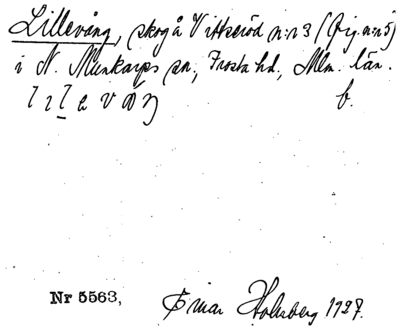 Lillevång, skog å Vittseröd n:r 3 (Fig. n:r 5)
i N. Munkarps sn., Frosta hd, Mlm. län.
b.
Nr 5563,
Einar Holmberg 1927.